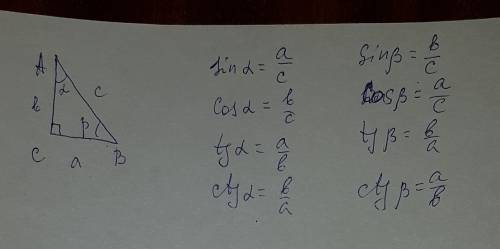 A
α
b
c
β
C
a
B
sin α = a/c
cos α = b/c
tg α = a/b
ctg α = b/a
sin β = b/c
cos β = a/c
tg β = b/a
ctg β = a/b